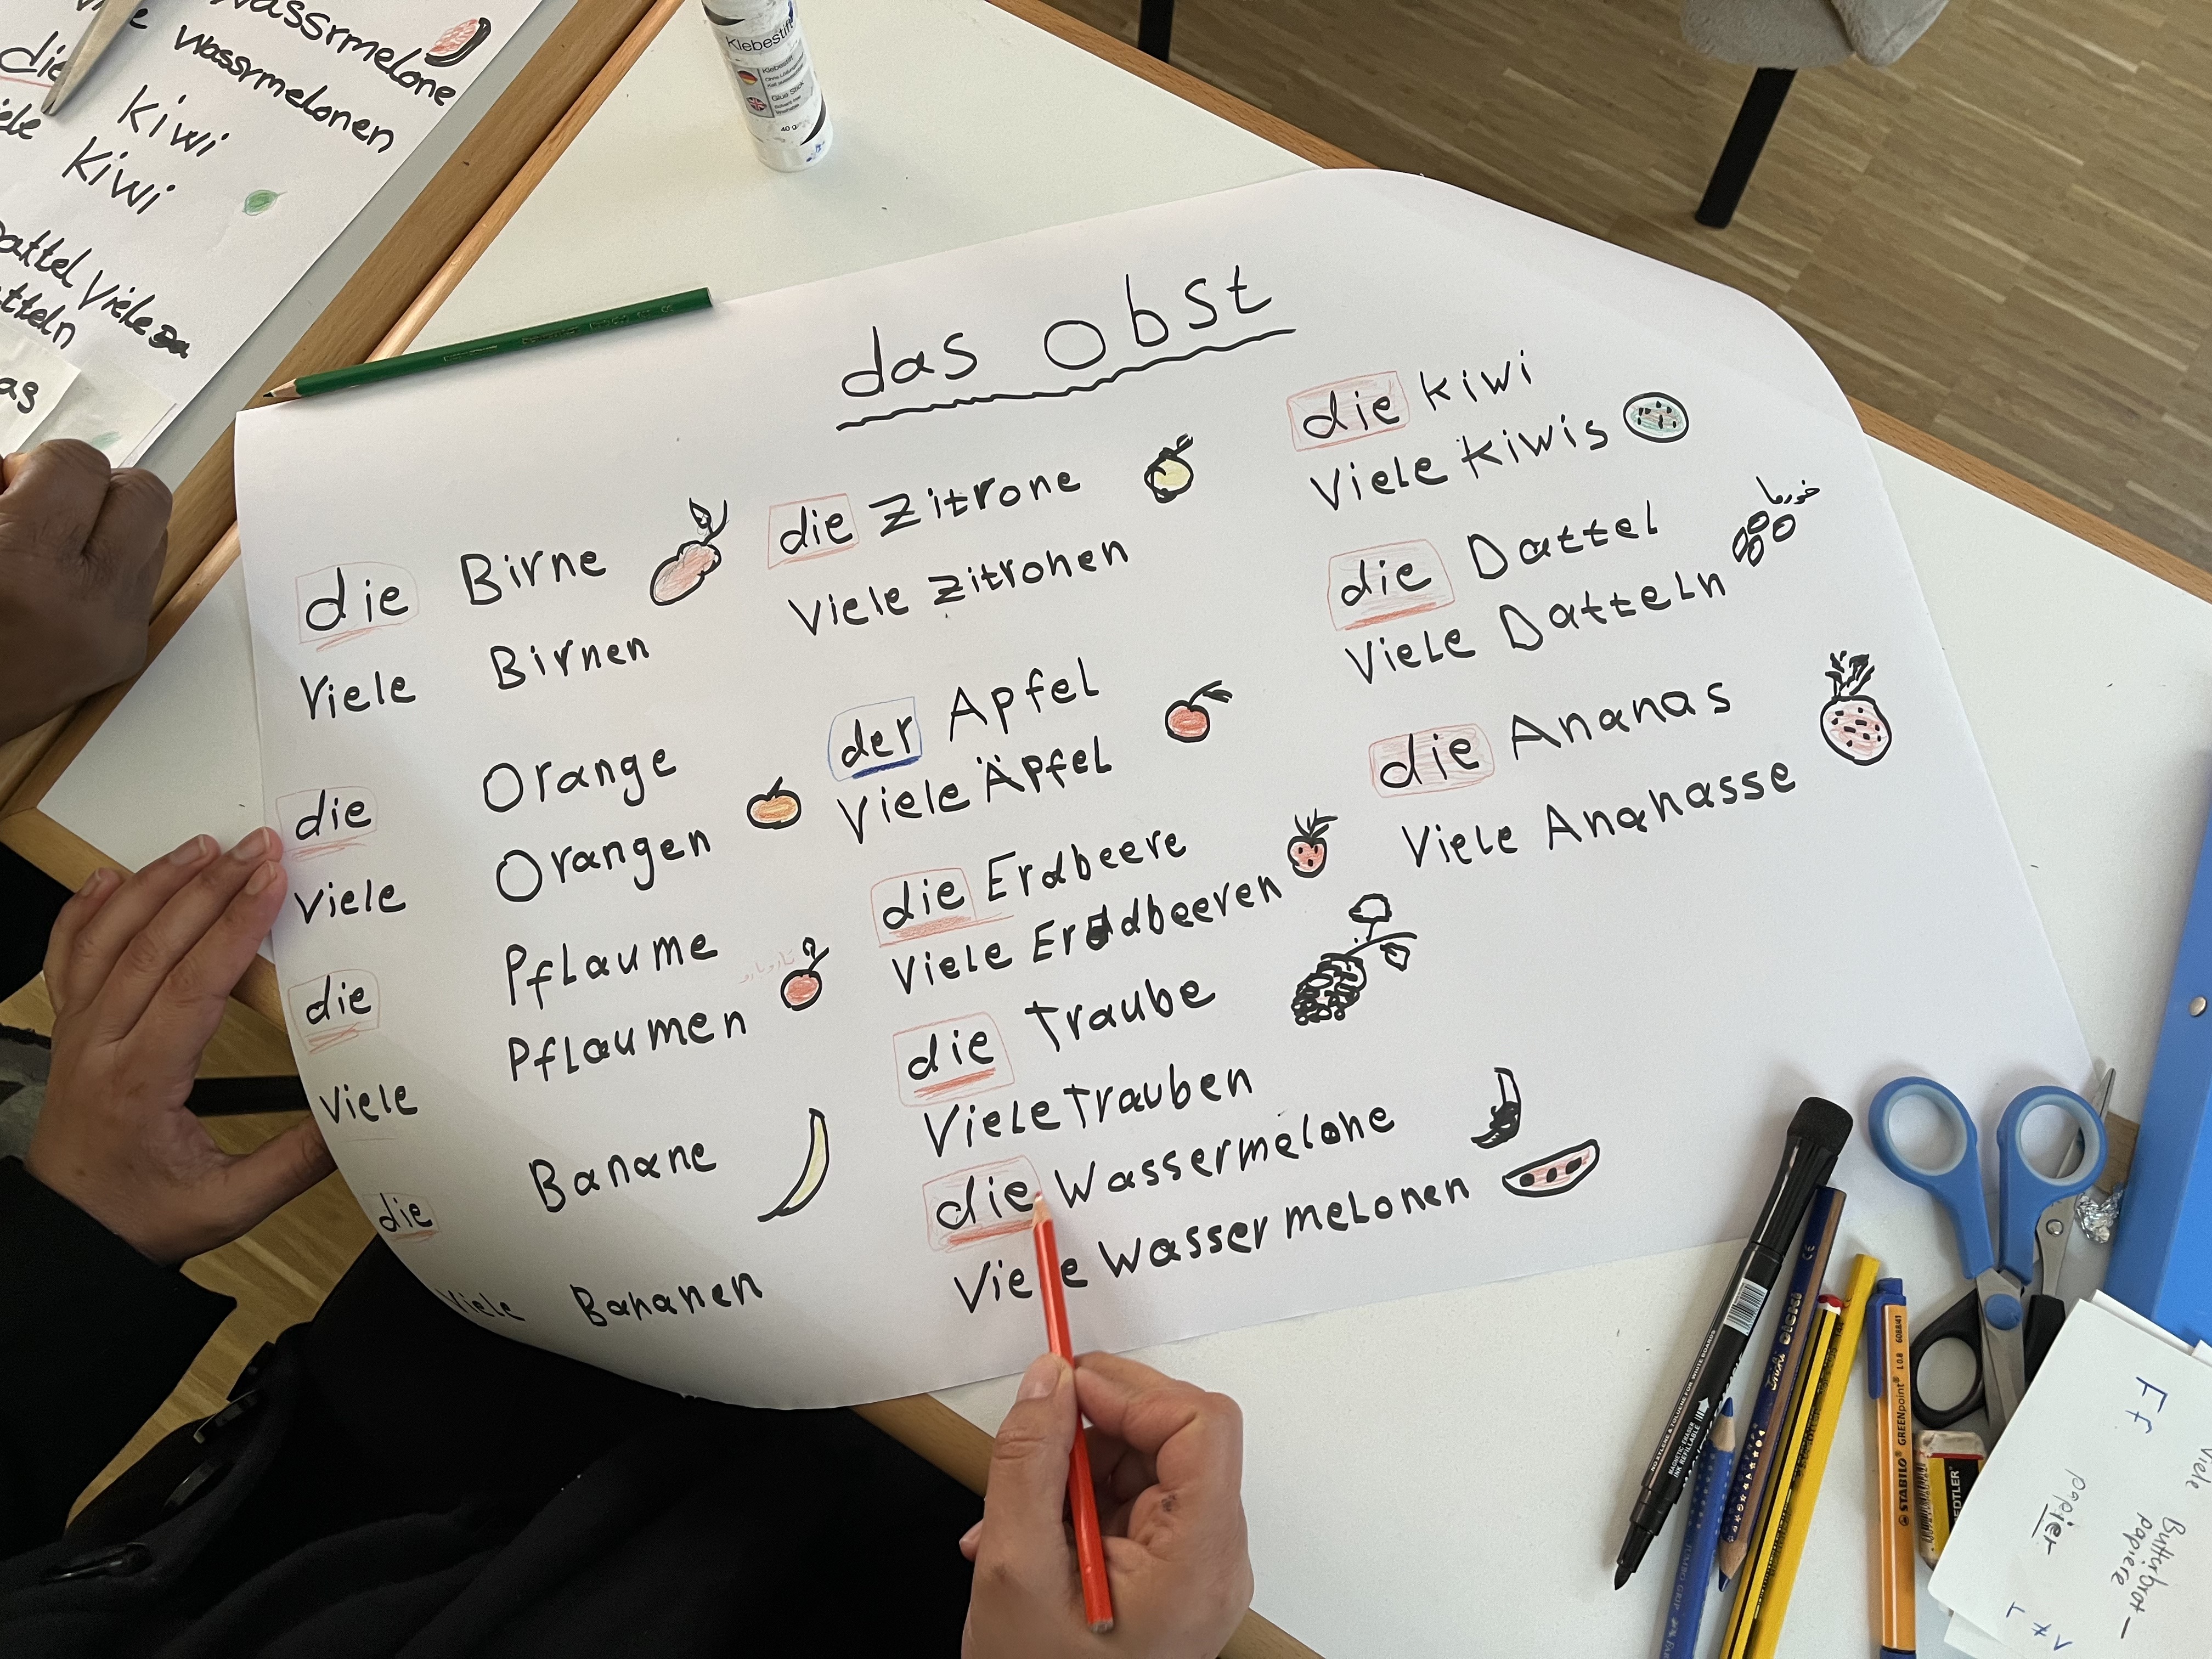 Wassrmelone
Wassrmelonen
die
Kiwi
Kiwi
Viele
tteln
as
Klebestift
Klebestift
Glue Stick
40 g
das Obst
die Birne
Viele Birnen
die Orange
Viele Orangen
die Pflaume
Viele Pflaumen
die Banane
Viele Bananen
die Zitrone
Viele Zitronen
der Apfel
Viele Äpfel
die Erdbeere
Viele Erdbeeren
die Traube
Viele Trauben
die Wassermelone
Viele Wassermelonen
die Kiwi
Viele Kiwis
die Dattel
خورما
Viele Datteln
die Ananas
Viele Ananasse
STABILO GREENpoint L 0.8 6088/41
Ff
Viele
papier
Butterbrot-
papiere